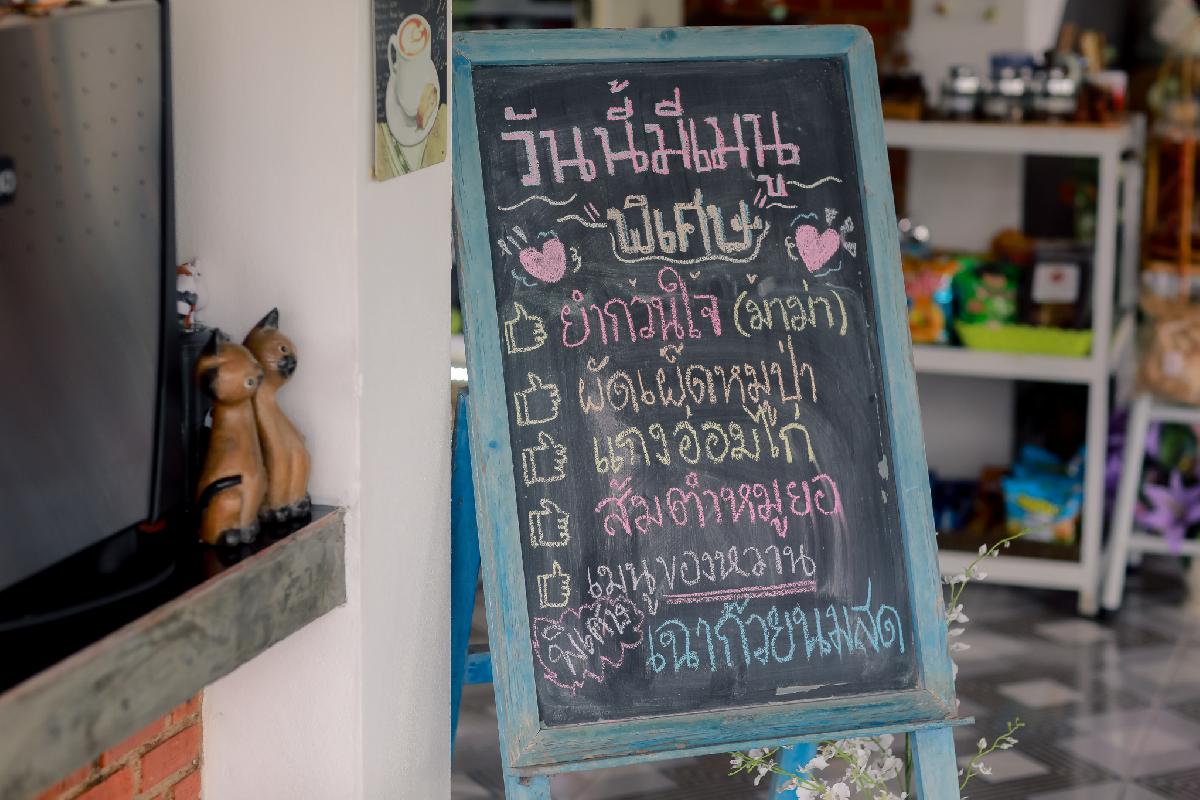 วันนี้มีเมนู
พิเศษ
ยำกวนใจ๋ (ม้าม่า)
ผัดเผ็ดหมูป่า
แกงอ่อมไก่
ส้มตำหมูยอ
เมนูของหวาน
พิเศษ เฉาก๊วยนมสด